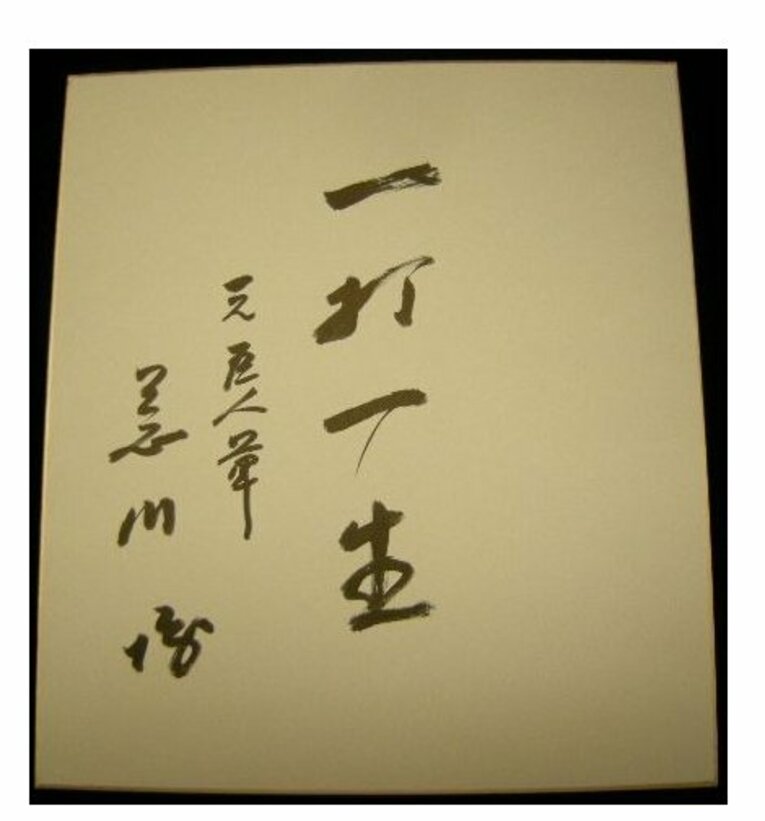 一打一生
元巨人軍
荒川 博